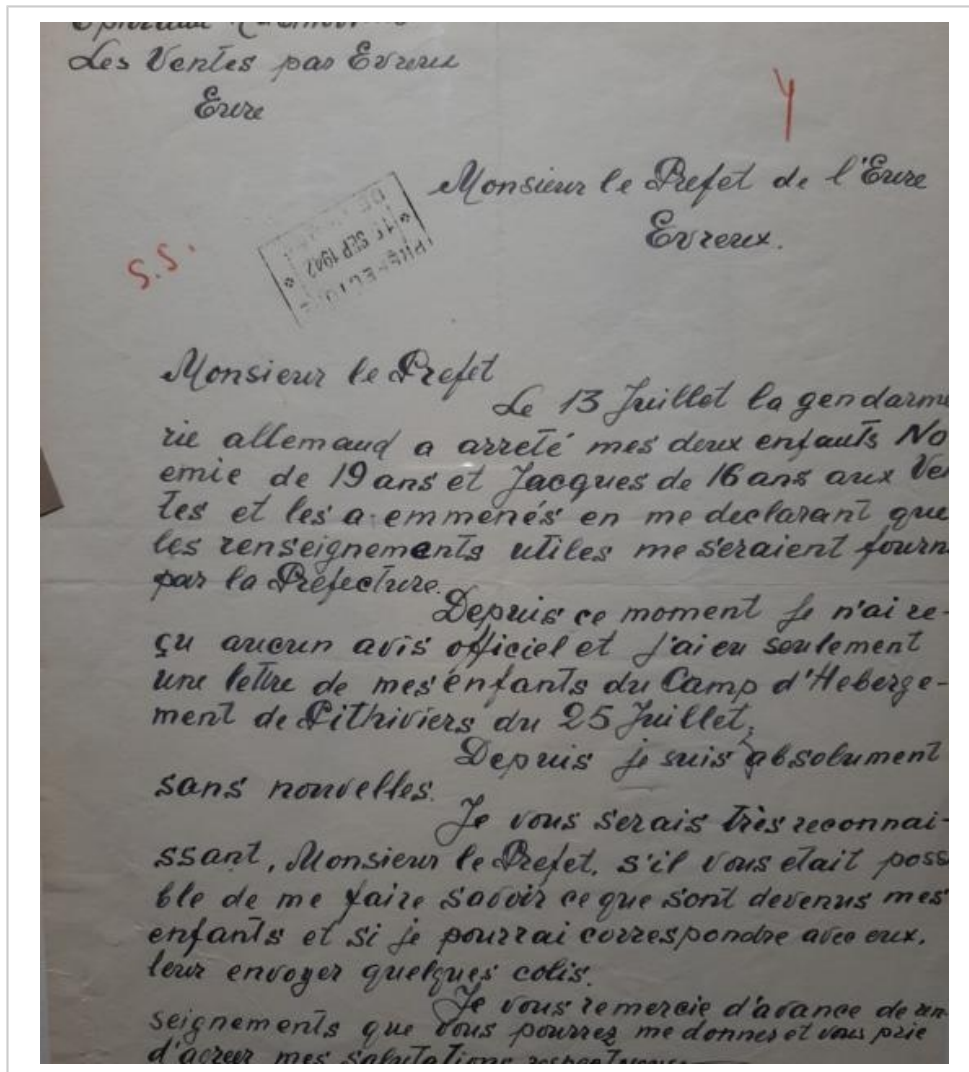 Les Ventes par Evreux
Eure
Y
Monsieur le Prefet de l'Eure
Evreux.
S.S.
PREFECTURE
SEP 1942
DE
Monsieur le Prefet
Le 13 Juillet la gendarme
rie allemand a arreté mes deux enfants No
emie de 19 ans et Jacques de 16 ans aux Ven
tes et les a emmenés en me declarant que
les renseignements utiles me seraient fourn
par la Prefecture.
Depuis ce moment je n'ai re-
çu aucun avis officiel et j'ai eu seulement
une lettre de mes enfants du Camp d'Heberge-
ment de Pithiviers du 25 Juillet,
Depuis je suis absolument
sans nouvelles.
Je vous serais très reconnai-
ssant, Monsieur le Prefet, s'il vous etait possi
ble de me faire savoir ce que sont devenus mes
enfants et si je pourrai correspondre avec eux.
leur envoyer quelques colis.
Je vous remercie d'avance de ren-
seignements que vous pourrez me donner et vous prie
d'agreer mes salutations